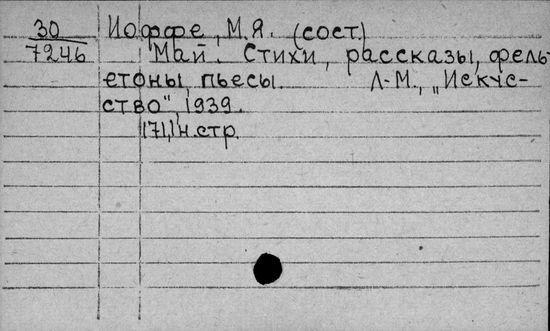 30 Иоффе, М.Я. (сост.)
7246 Май. Стихи, рассказы, фель-
етоны, пьесы. Л-М., „Искус-
ство", 1939.
171,1 н.стр.